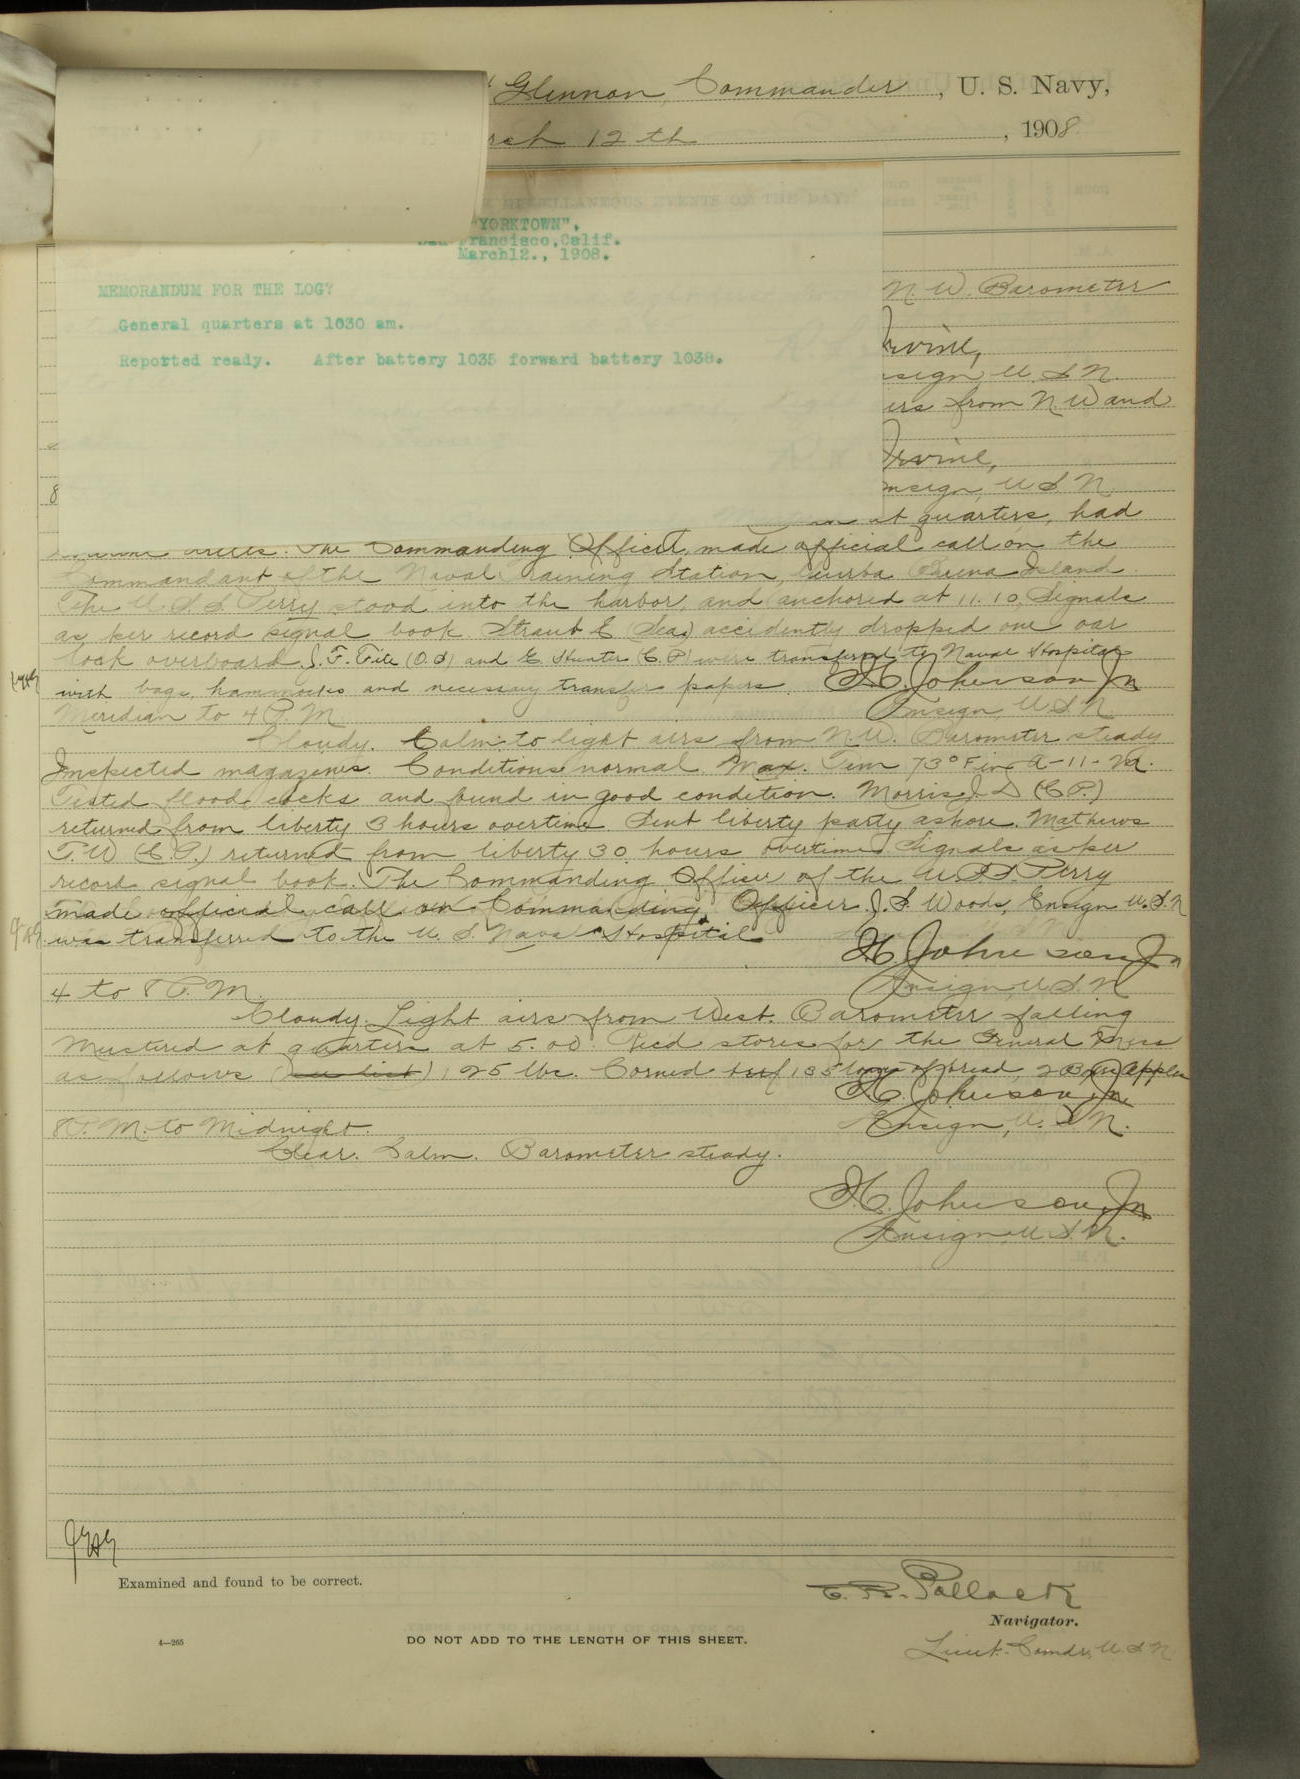 Glennon, Commander, U. S. Navy,
rch 12 th, 1908
MISCELLANEOUS EVENTS OF THE DAY.
"YORKTOWN",
San Francisco,Calif.
March12., 1908.
MEMORANDUM FOR THE LOG?
General quarters at 1030 am.
Reported ready. After battery 1035 forward battery 1038.
N. W. Barometer
Irvine,
nsign, U. S. N.
irs from N. W and
Irvine,
nsign, U S N
8
at quarters, had
The Commanding Officer, made official call on the
Commandant of the Naval Training Station, Yerba Buena Island.
The U. S. S. Perry stood into the harbor, and anchored at 11.10, Signals
as per record signal book. Straub E (Sea) accidently dropped one oar
lock overboard. J. F. (O.S) and E. Hunter (C.P) were transferred to Naval Hospital
with bags, hammocks and necessary transfer papers. H. Johnson Jr
Meridian to 4 P. M. Ensign, U. S. N.
Cloudy. Calm to light airs from N. W. Barometer steady
Inspected magazines. Conditions normal. Max. Tem 73° F in A-11-M.
Tested flood cocks and found in good condition. Morris J. D (C.P.)
returned from liberty 3 hours overtime. Sent liberty party ashore. Mathews
T. W (C. P.) returned from liberty 30 hours overtime. Signals as per
record signal book. The Commanding Officer of the U. S. S. Perry
made official call on Commanding Officer. J. S. Woods, Ensign U. S. N
was transferred to the U. S. Naval Hospital
H. Johnson Jr
4 to 8 P. M. Ensign, U. S. N
Cloudy. Light airs from West. Barometer falling
Mustered at quarters at 5.00. Recd stores for the General Mess
as follows (see list), 25 lbs. Corned beef 135 loaves of bread, apples
H. Johnson, Jr.
8 P. M. to Midnight. Ensign, U. S. N.
Clear. Calm. Barometer steady.
H. Johnson, Jr
Ensign, U. S. N.
Examined and found to be correct.
Pollock
Navigator.
4—265
DO NOT ADD TO THE LENGTH OF THIS SHEET.
Lieut. Comdr, U. S. N